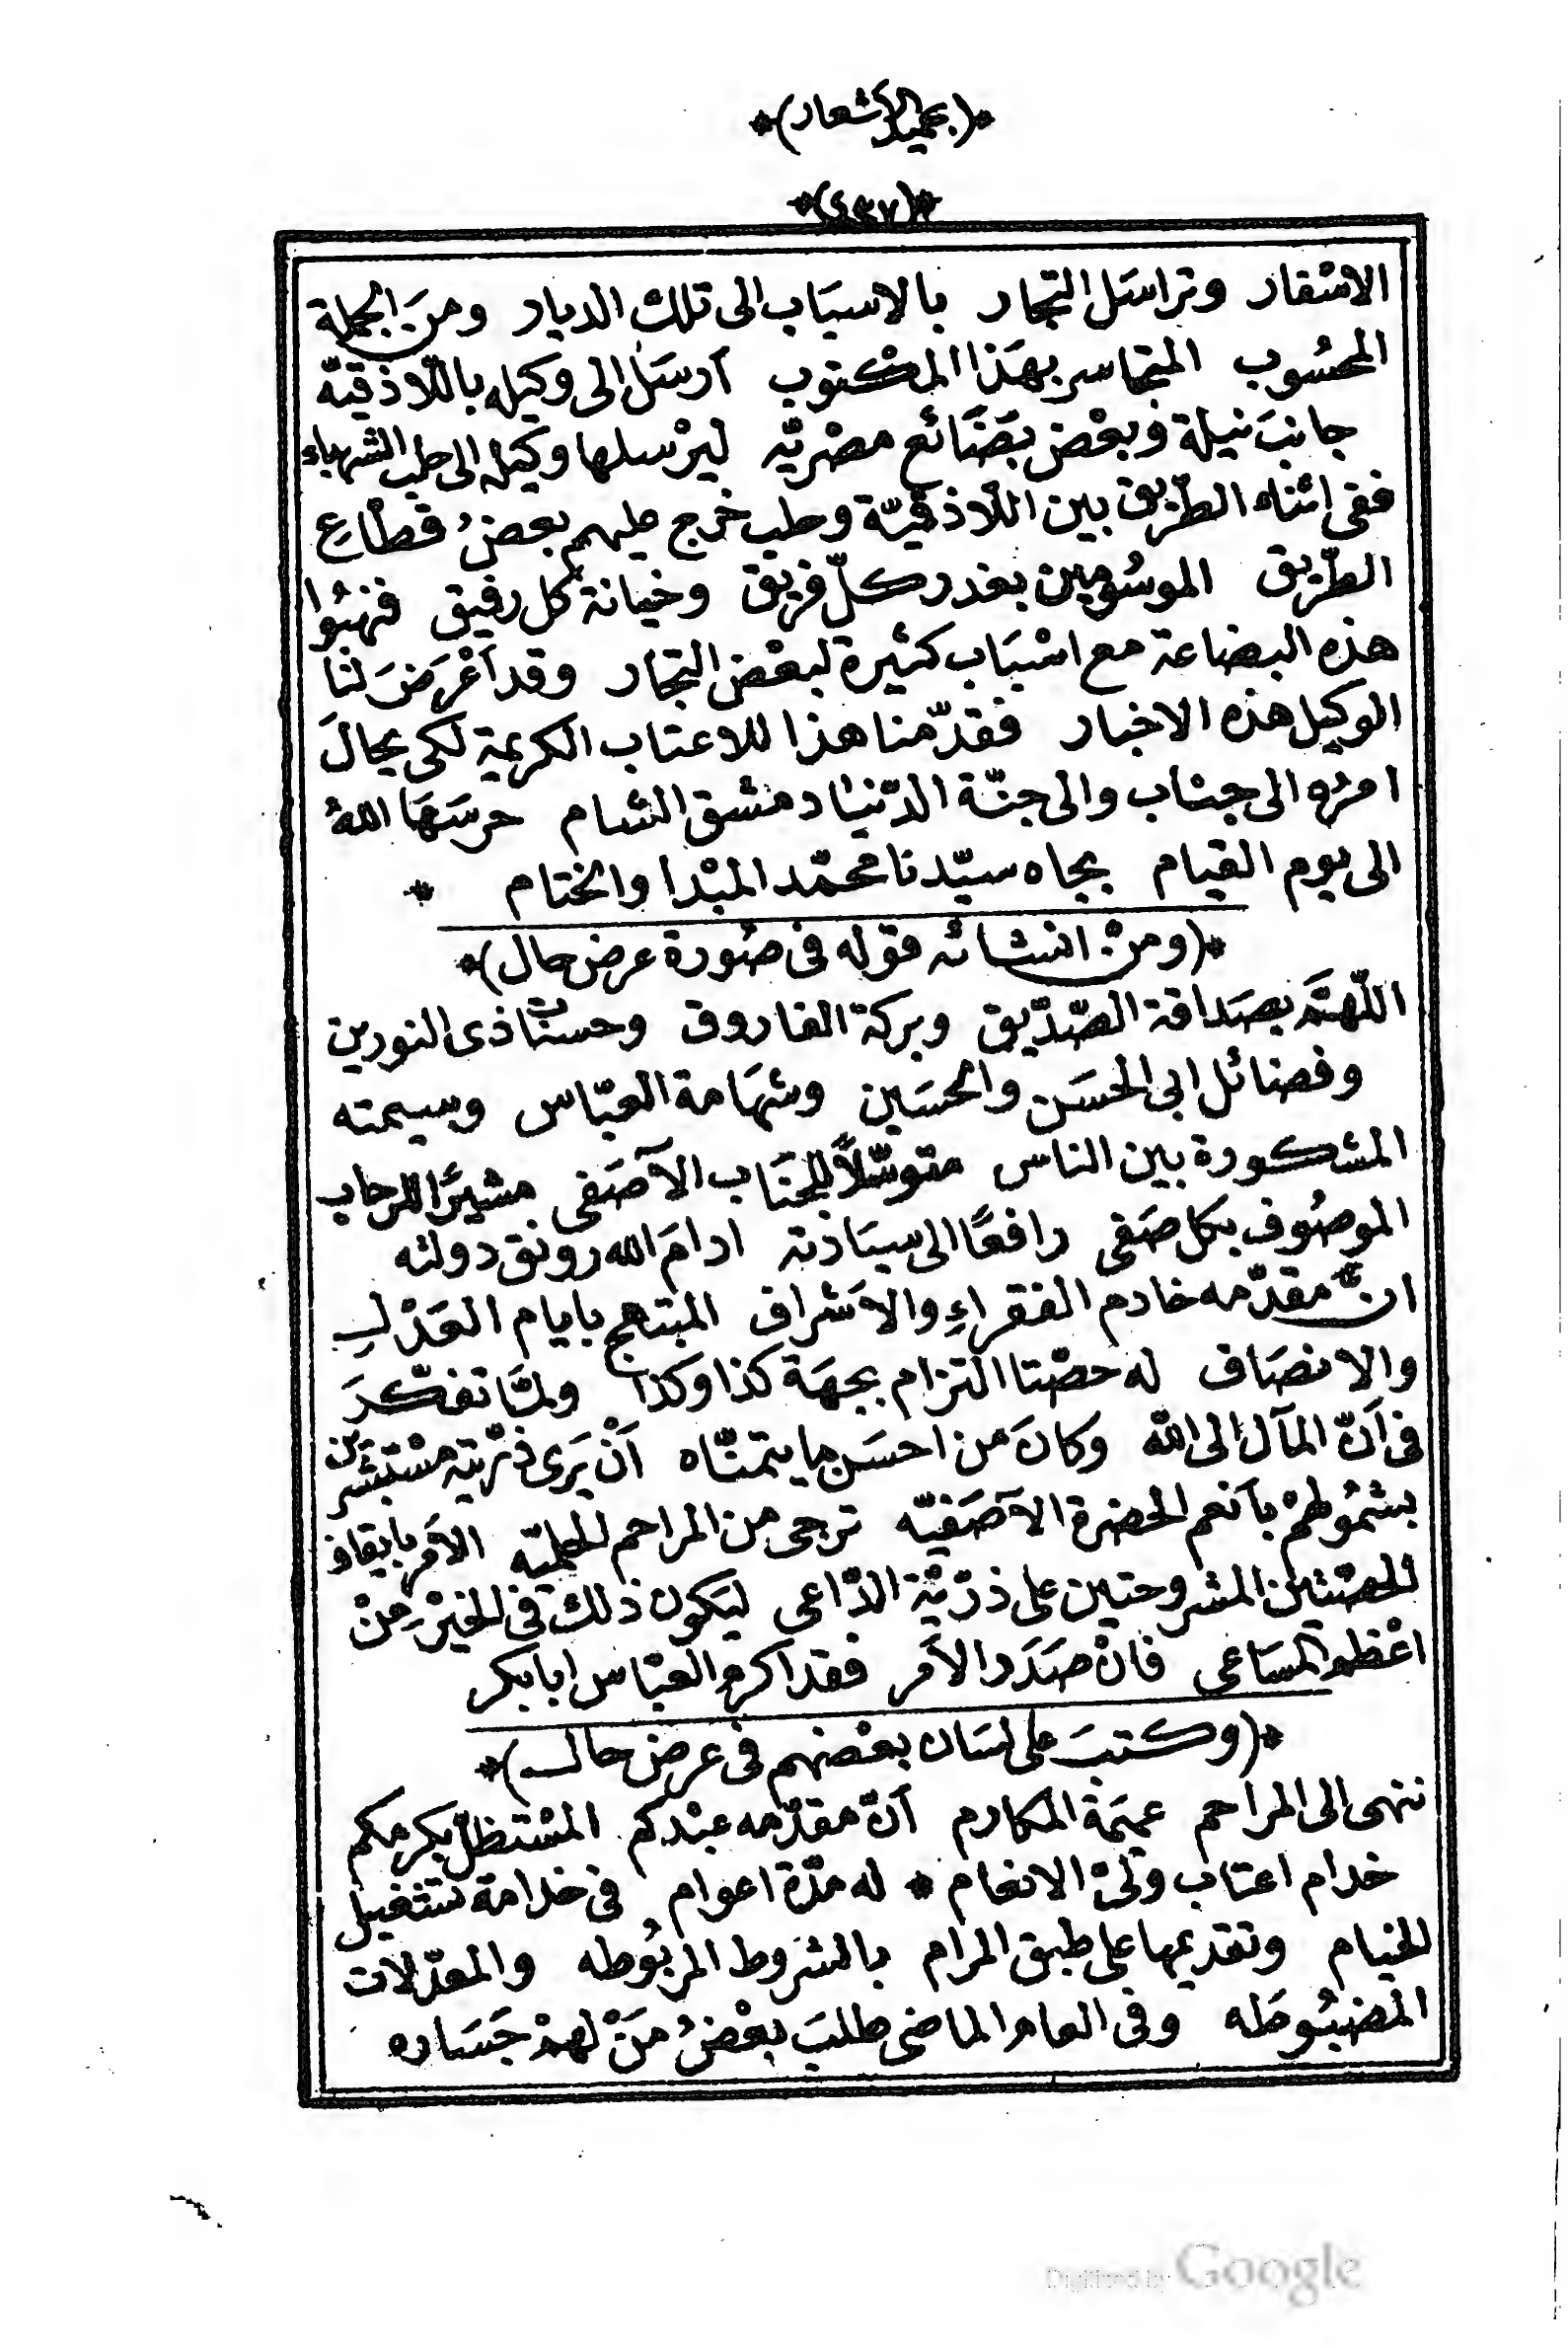 *(بحميد الأشعار)*
*(٤٣٧)*
الاسْفار وتراسَل التجار بالاسبَاب الى تلك الديار ومنَ الجملة
المحسُوب المتجاسر بهَذا المكتوب اَرسَل الى وكيله باللّاذقيّة
جانبَ نيلة وبعْض بضَائع مصْريّه ليرْسلها وكيله الى حلب الشهباء
ففى اثناء الطّريق بين اللّاذقيّة وحلب خرج عليهم بعضُ قطّاعِ
الطّريق الموسُومين بغدر كلّ فريق وخيانة كل رفيق فنهبُوا
هذه البضاعة مع اسْبَاب كثيرة لبعْض التجار وقد اَعْرَضَ لنا
الوكيل هذه الاخبار فقدّمنا هذا للاعتاب الكريمة لكى يحالَ
امرُه الى جناب والى جنّة الدّنيا دمشق الشام حرسَهَا اللهُ
الى يوم القيام بجاه سيّدنا محمّد المبْدأ والختام *
*(ومنْ انشائه قوله فى صُورة عرض حال)*
اللّهمَّ بصَداقة الصّدّيق وبركة الفاروق وحسنات ذى النورين
وفضائل ابى الحسَن والحسَين وشهَامة العبّاس وسيمته
المشكورة بين الناس متوسّلاً للجنَاب الآصَفى مشيرًا للرحاب
الموصُوف بكل صَفى رافعًا الى سيَادته ادامَ الله رونق دولته
انّ مقدّمه خادم الفقراءِ والاَشراف المبتهج بايام العَدْلِ
والانصَاف له حصّتا التزام بجهَة كذا وكذا ولمّا تفكّرَ
فى اَنّ المآل الى الله وكانَ من احسَن ما يتمنّاه اَنْ يَرى ذرّيته مسْتبشرين
بشمُولهمْ بأنعم الحضرة الآصَفيّه ترجى من المراحم العليّه الاَمْر بابقاء
الحصّتين المشروحتين على ذرّيّة الدّاعى ليَكون ذلك فى الخيْر مِنْ
اعْظم المسَاعى فانْ صَدَر الاَمر فقد اكرم العبّاس ابا بكر
*(وكتبَ على لسَان بعْضهم فى عرض حال)*
ننهى الى المراحم عميمَة المكارم اَنّ مقدّمه عبْدكم المسْتظلّ بكرمكم
خدام اعتاب ولىّ الانعام * له مدّة اعوام فى خدامة تشغيل
الخيام وتقديمها على طبق المرام بالشروط المربُوطه والمعدّلات
المضبُوطَه وفى العام الماضى طلبَ بعْضُ مَنْ لهمْ جَسَاره
Digitized by Google